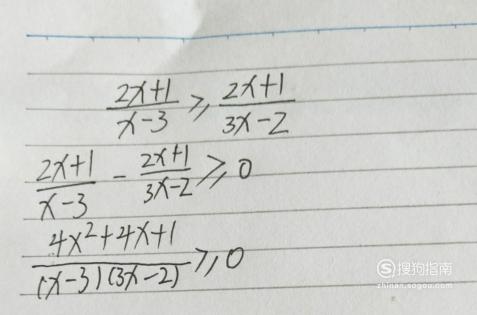 (2x+1)/(x-3) ≥ (2x+1)/(3x-2)
(2x+1)/(x-3) - (2x+1)/(3x-2) ≥ 0
(4x²+4x+1)/((x-3)(3x-2)) ≥ 0
S 搜狗指南
zhinan.sogou.com